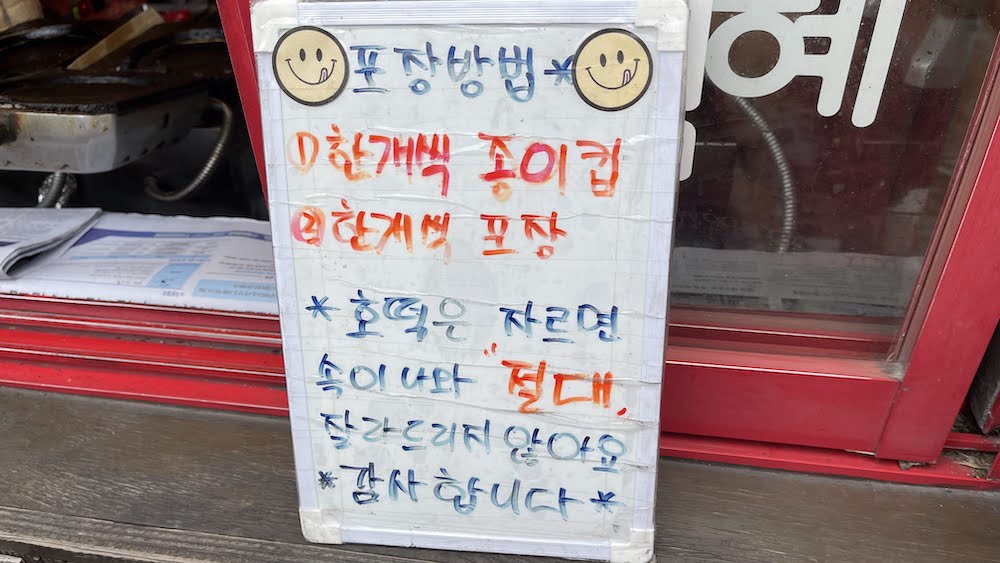 포장방법*
① 한개씩 종이컵
② 한개씩 포장
* 호떡은 자르면
속이나와 "절대"
잘라드리지 않아요
*감사합니다*
예